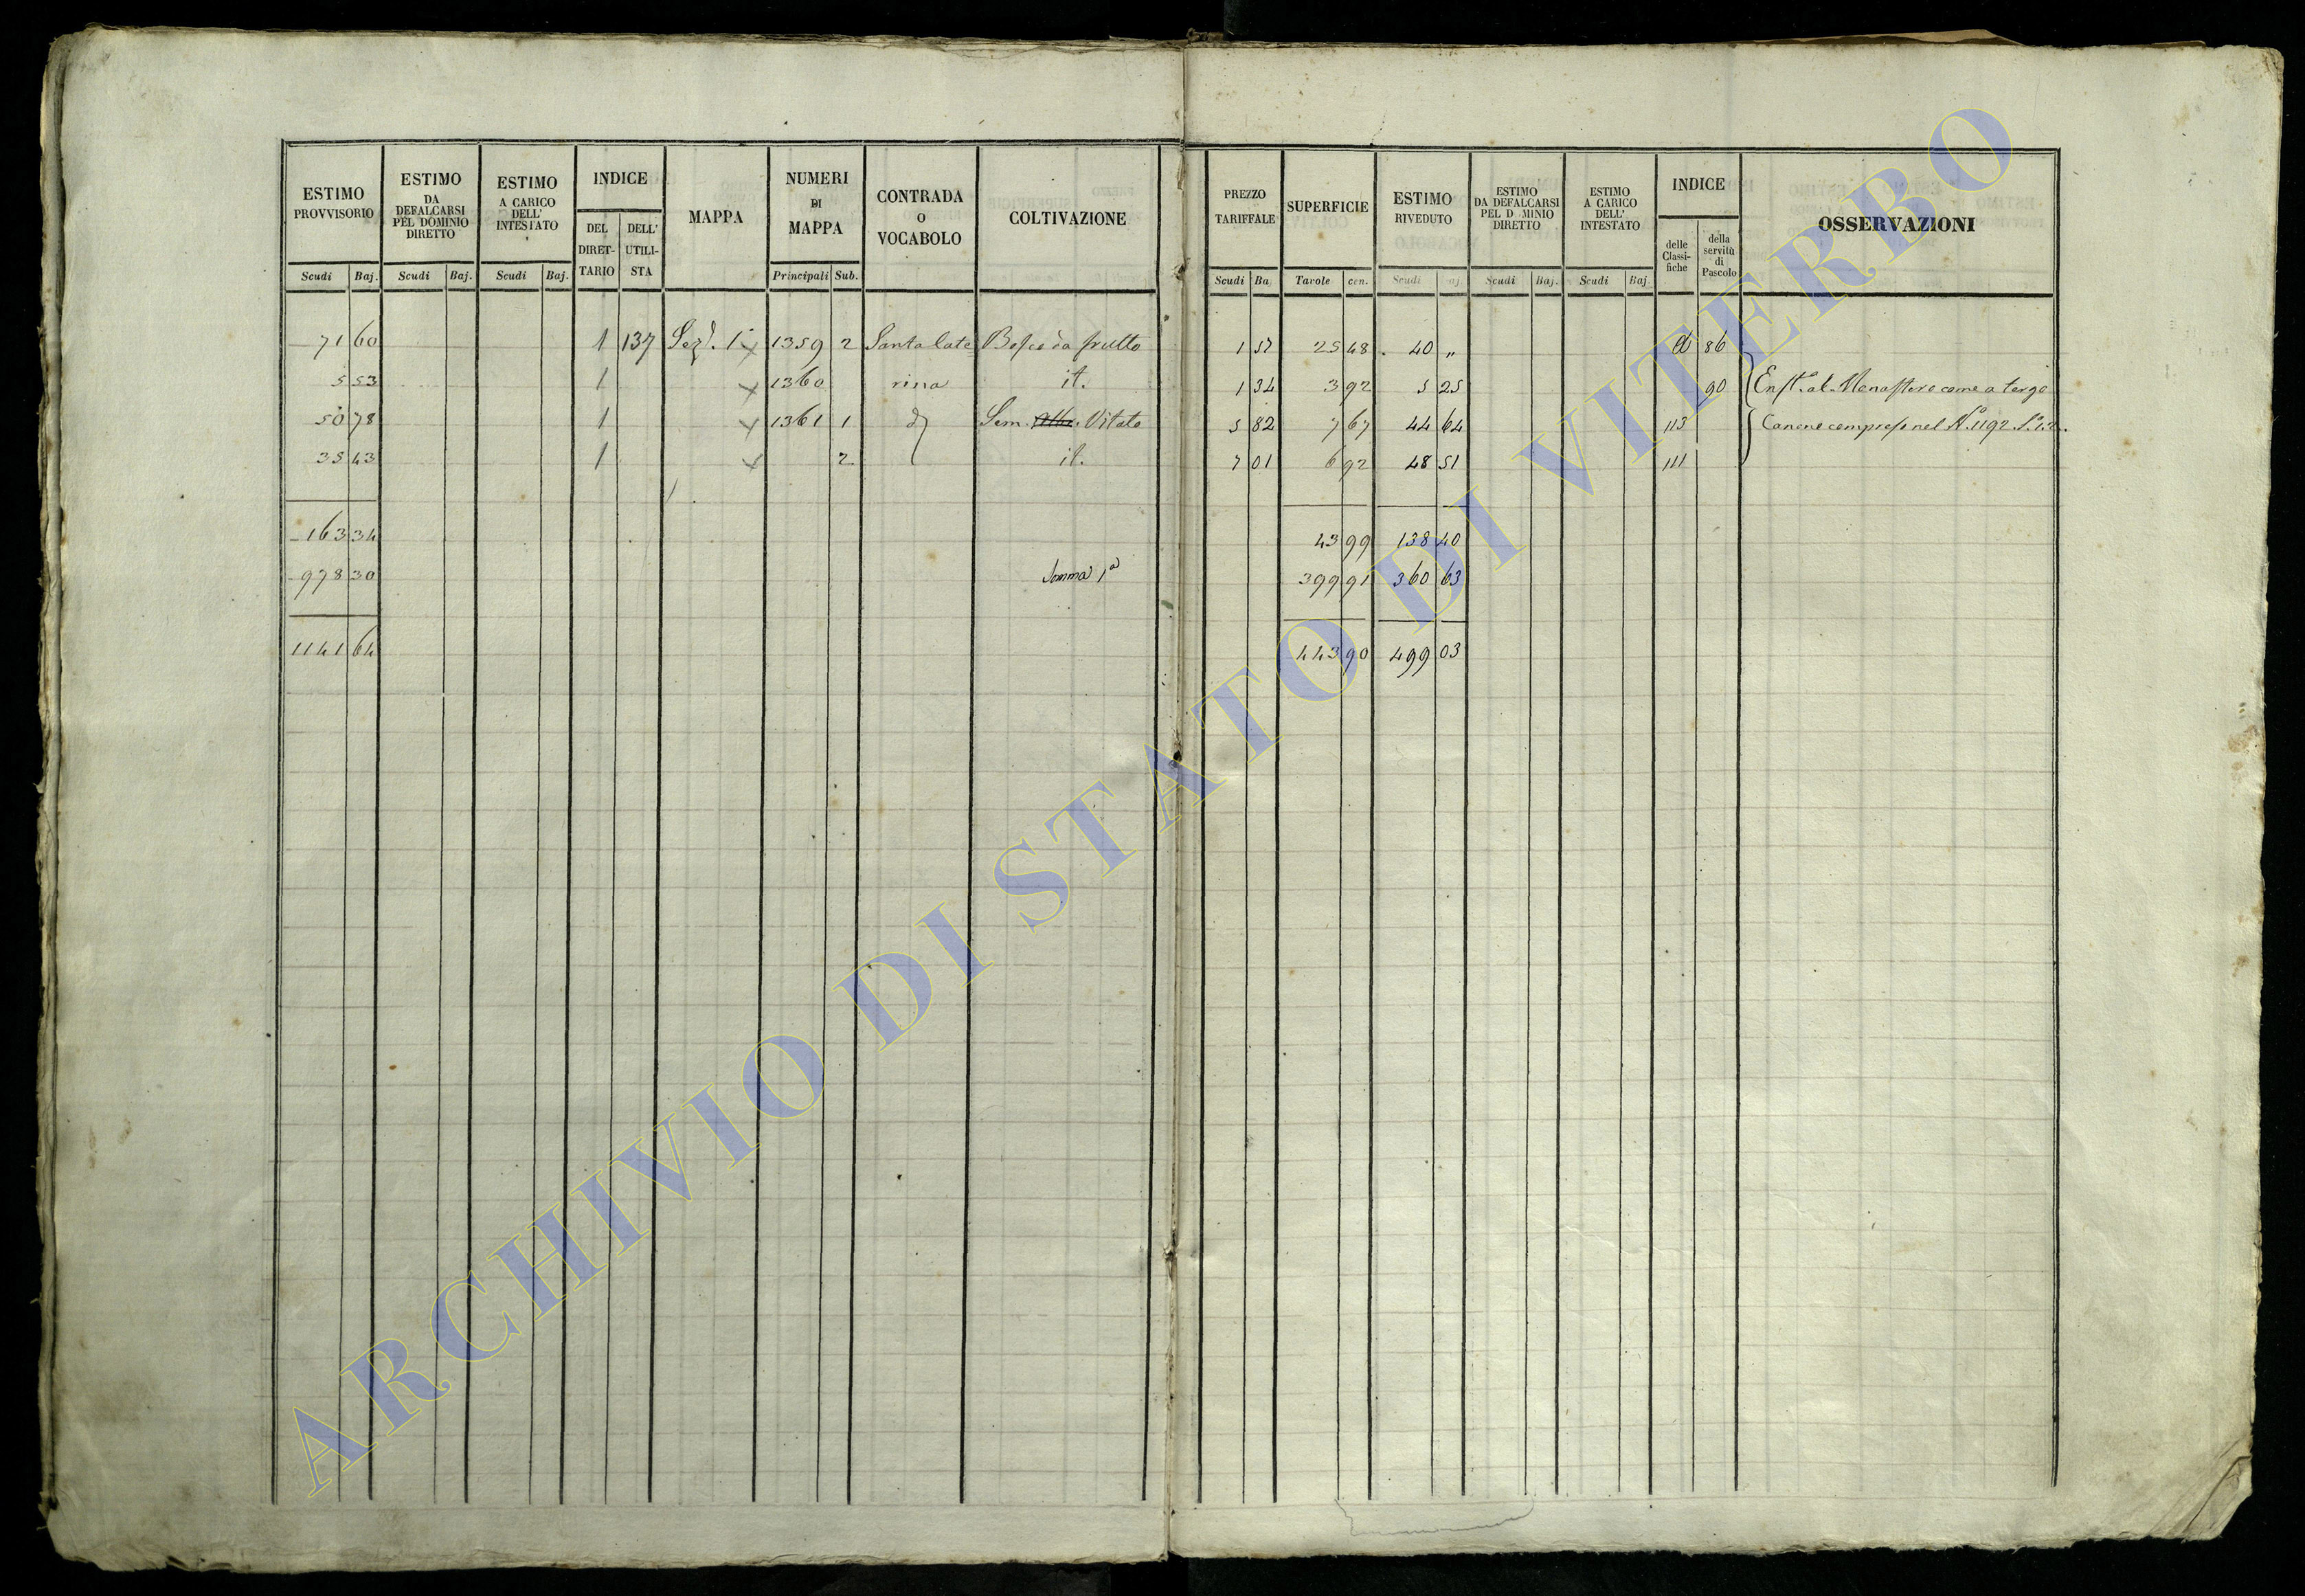 ESTIMO PROVVISORIO | ESTIMO DA DEFALCARSI PEL DOMINIO DIRETTO | ESTIMO A CARICO DELL' INTESTATO | INDICE | MAPPA | NUMERI DI MAPPA | CONTRADA O VOCABOLO | COLTIVAZIONE | PREZZO TARIFFALE | SUPERFICIE | ESTIMO RIVEDUTO | ESTIMO DA DEFALCARSI PEL D MINIO DIRETTO | ESTIMO A CARICO DELL' INTESTATO | INDICE | OSSERVAZIONI
DEL DIRET-TARIO | DELL' UTILI-STA | delle Classi-fiche | della servitù di Pascolo
Scudi | Baj. | Scudi | Baj. | Scudi | Baj. | Principali | Sub. | Scudi | Ba | Tavole | cen. | Scudi | aj. | Scudi | Baj. | Scudi | Baj.
71 60 | 1 | 137 | Sez. 1 | 1359 | 2 | Santa Cate= | Bosco da frutto | 1 57 | 25 48 | 40 „ | 86
5 53 | 1 | 1360 | rina | it. | 1 34 | 3 92 | 5 25 | 90 | Enft. al Monastero come a tergo
50 78 | 1 | 1361 | 1 | Sem. Vitato | 5 82 | 7 67 | 44 64 | 113 | Canone compreso nel N.° 1192 S. 1.2.
35 43 | 1 | 2 | it. | 7 01 | 6 92 | 48 51 | 111
163 34 | 43 99 | 138 40
978 30 | Somma 1a | 399 91 | 360 63
1141 64 | 443 90 | 499 03
ARCHIVIO DI STATO DI VITERBO